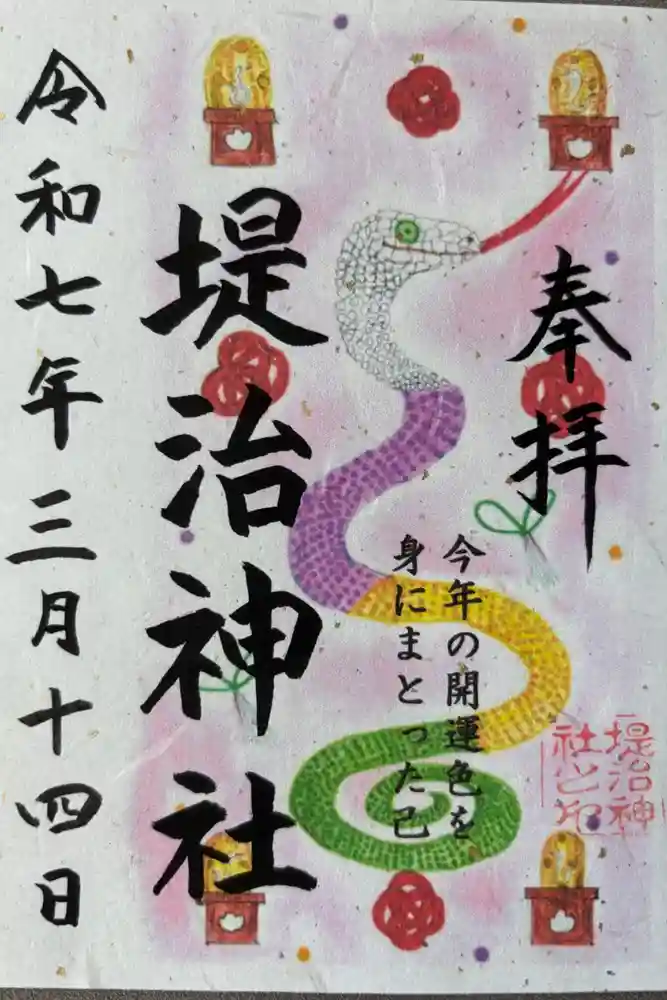 奉拝
今年の開運色を
身にまとった己
堤治神社
令和七年三月十四日
堤治神
社